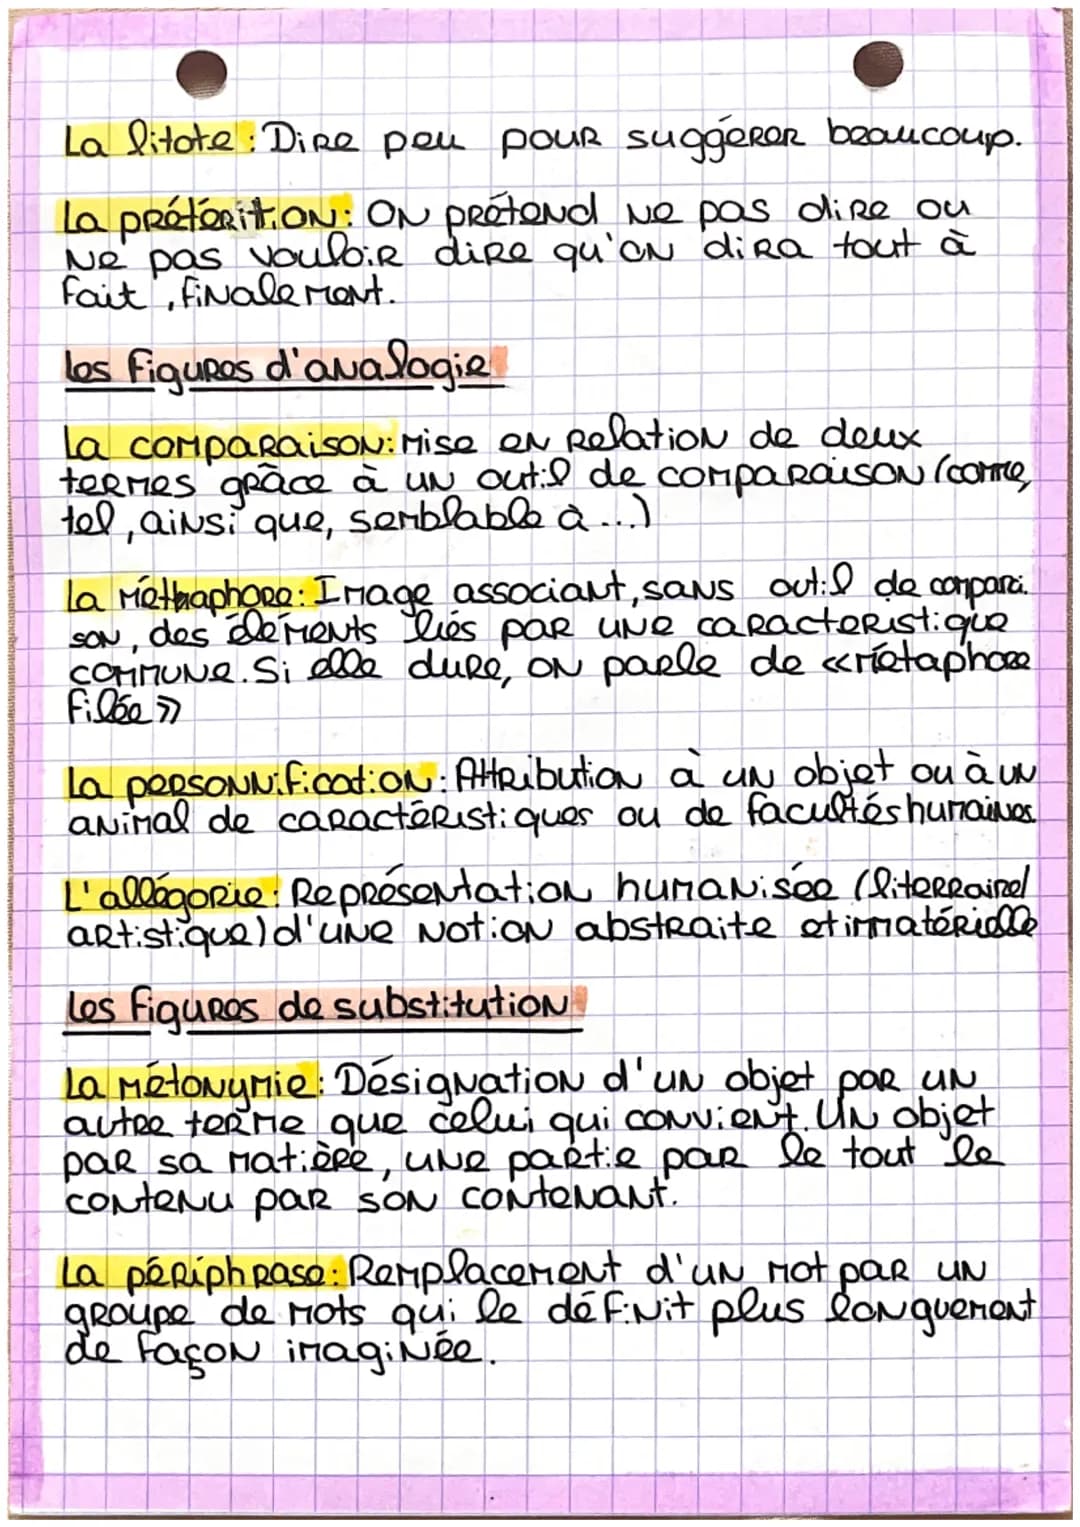 La litote : Dire peu pour suggérer beaucoup.
La prétérition : On prétend ne pas dire ou
ne pas vouloir dire qu'on dira tout à
fait, finalement.
Les figures d'analogie
La comparaison : Mise en relation de deux
termes grâce à un outil de comparaison (comme,
tel, ainsi que, semblable à ...)
La méthaphore : Image associant, sans outil de comparai.
son, des éléments liés par une caracteristique
commune. Si elle dure, on parle de «métaphore
filée»
La personnification : Attribution à un objet ou à un
animal de caractéristiques ou de facultés humaines
L'allégorie : Représentation humanisée (literraire/
artistique) d'une notion abstraite et immatérielle
Les figures de substitution
La métonymie : Désignation d'un objet par un
autre terme que celui qui convient. Un objet
par sa matière, une partie par le tout le
contenu par son contenant.
La périphrase : Remplacement d'un mot par un
groupe de mots qui le définit plus longuement
de façon imaginée.